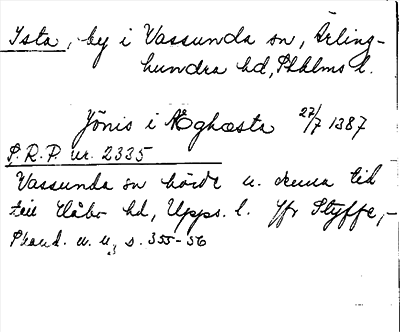 Ista, by i Vassunda sn, Ärling-
hundra hd, Sthlms l.
Jönis i Æghæsta 27/7 1387
S.R.P. nr. 2335
Vassunda sn hörde u. denna tid
till Håbo hd, Upps. l. Jfr Styffe,
Skand. u. u., s. 355-56